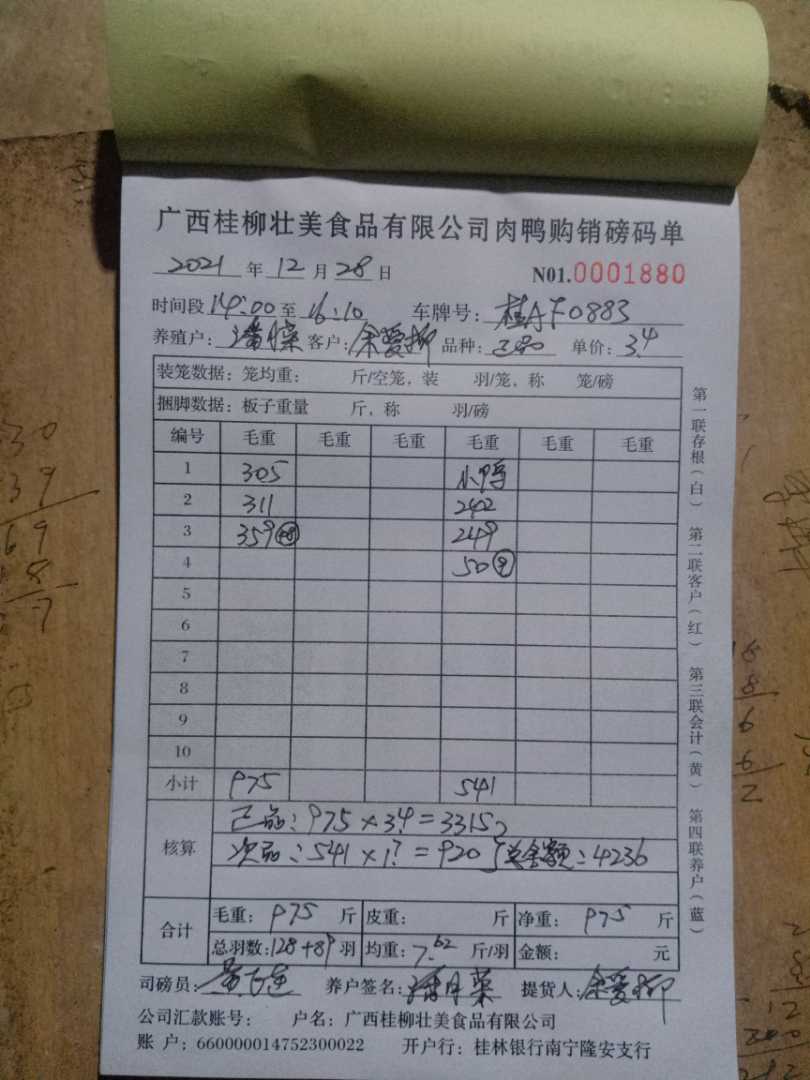 广西桂柳壮美食品有限公司肉鸭购销磅码单
2021 年 12 月 28 日 N01.0001880
时间段 14:00 至 16:10 车牌号: 桂AF0883
养殖户: 客户: 余爱柳 品种: 正品 单价: 3.4
装笼数据: 笼均重: 斤/空笼, 装 羽/笼, 称 笼/磅
捆脚数据: 板子重量 斤, 称 羽/磅
编号 毛重 毛重 毛重 毛重 毛重 毛重
1 305 小鸭
2 311 242
3 359 249
4 50
5
6
7
8
9
10
小计 975 541
核算
正品: 975×3.4=3315
次品: 541×1.7=920 总金额: 4236
合计
毛重: 975 斤 皮重: 斤 净重: 975 斤
总羽数: 128+89 羽 均重: 7.62 斤/羽 金额: 元
司磅员: 养户签名: 提货人: 余爱柳
公司汇款账号: 户名: 广西桂柳壮美食品有限公司
账 户: 660000014752300022 开户行: 桂林银行南宁隆安支行
第一联存根(白) 第二联客户(红) 第三联会计(黄) 第四联养户(蓝)
30
39
69
8